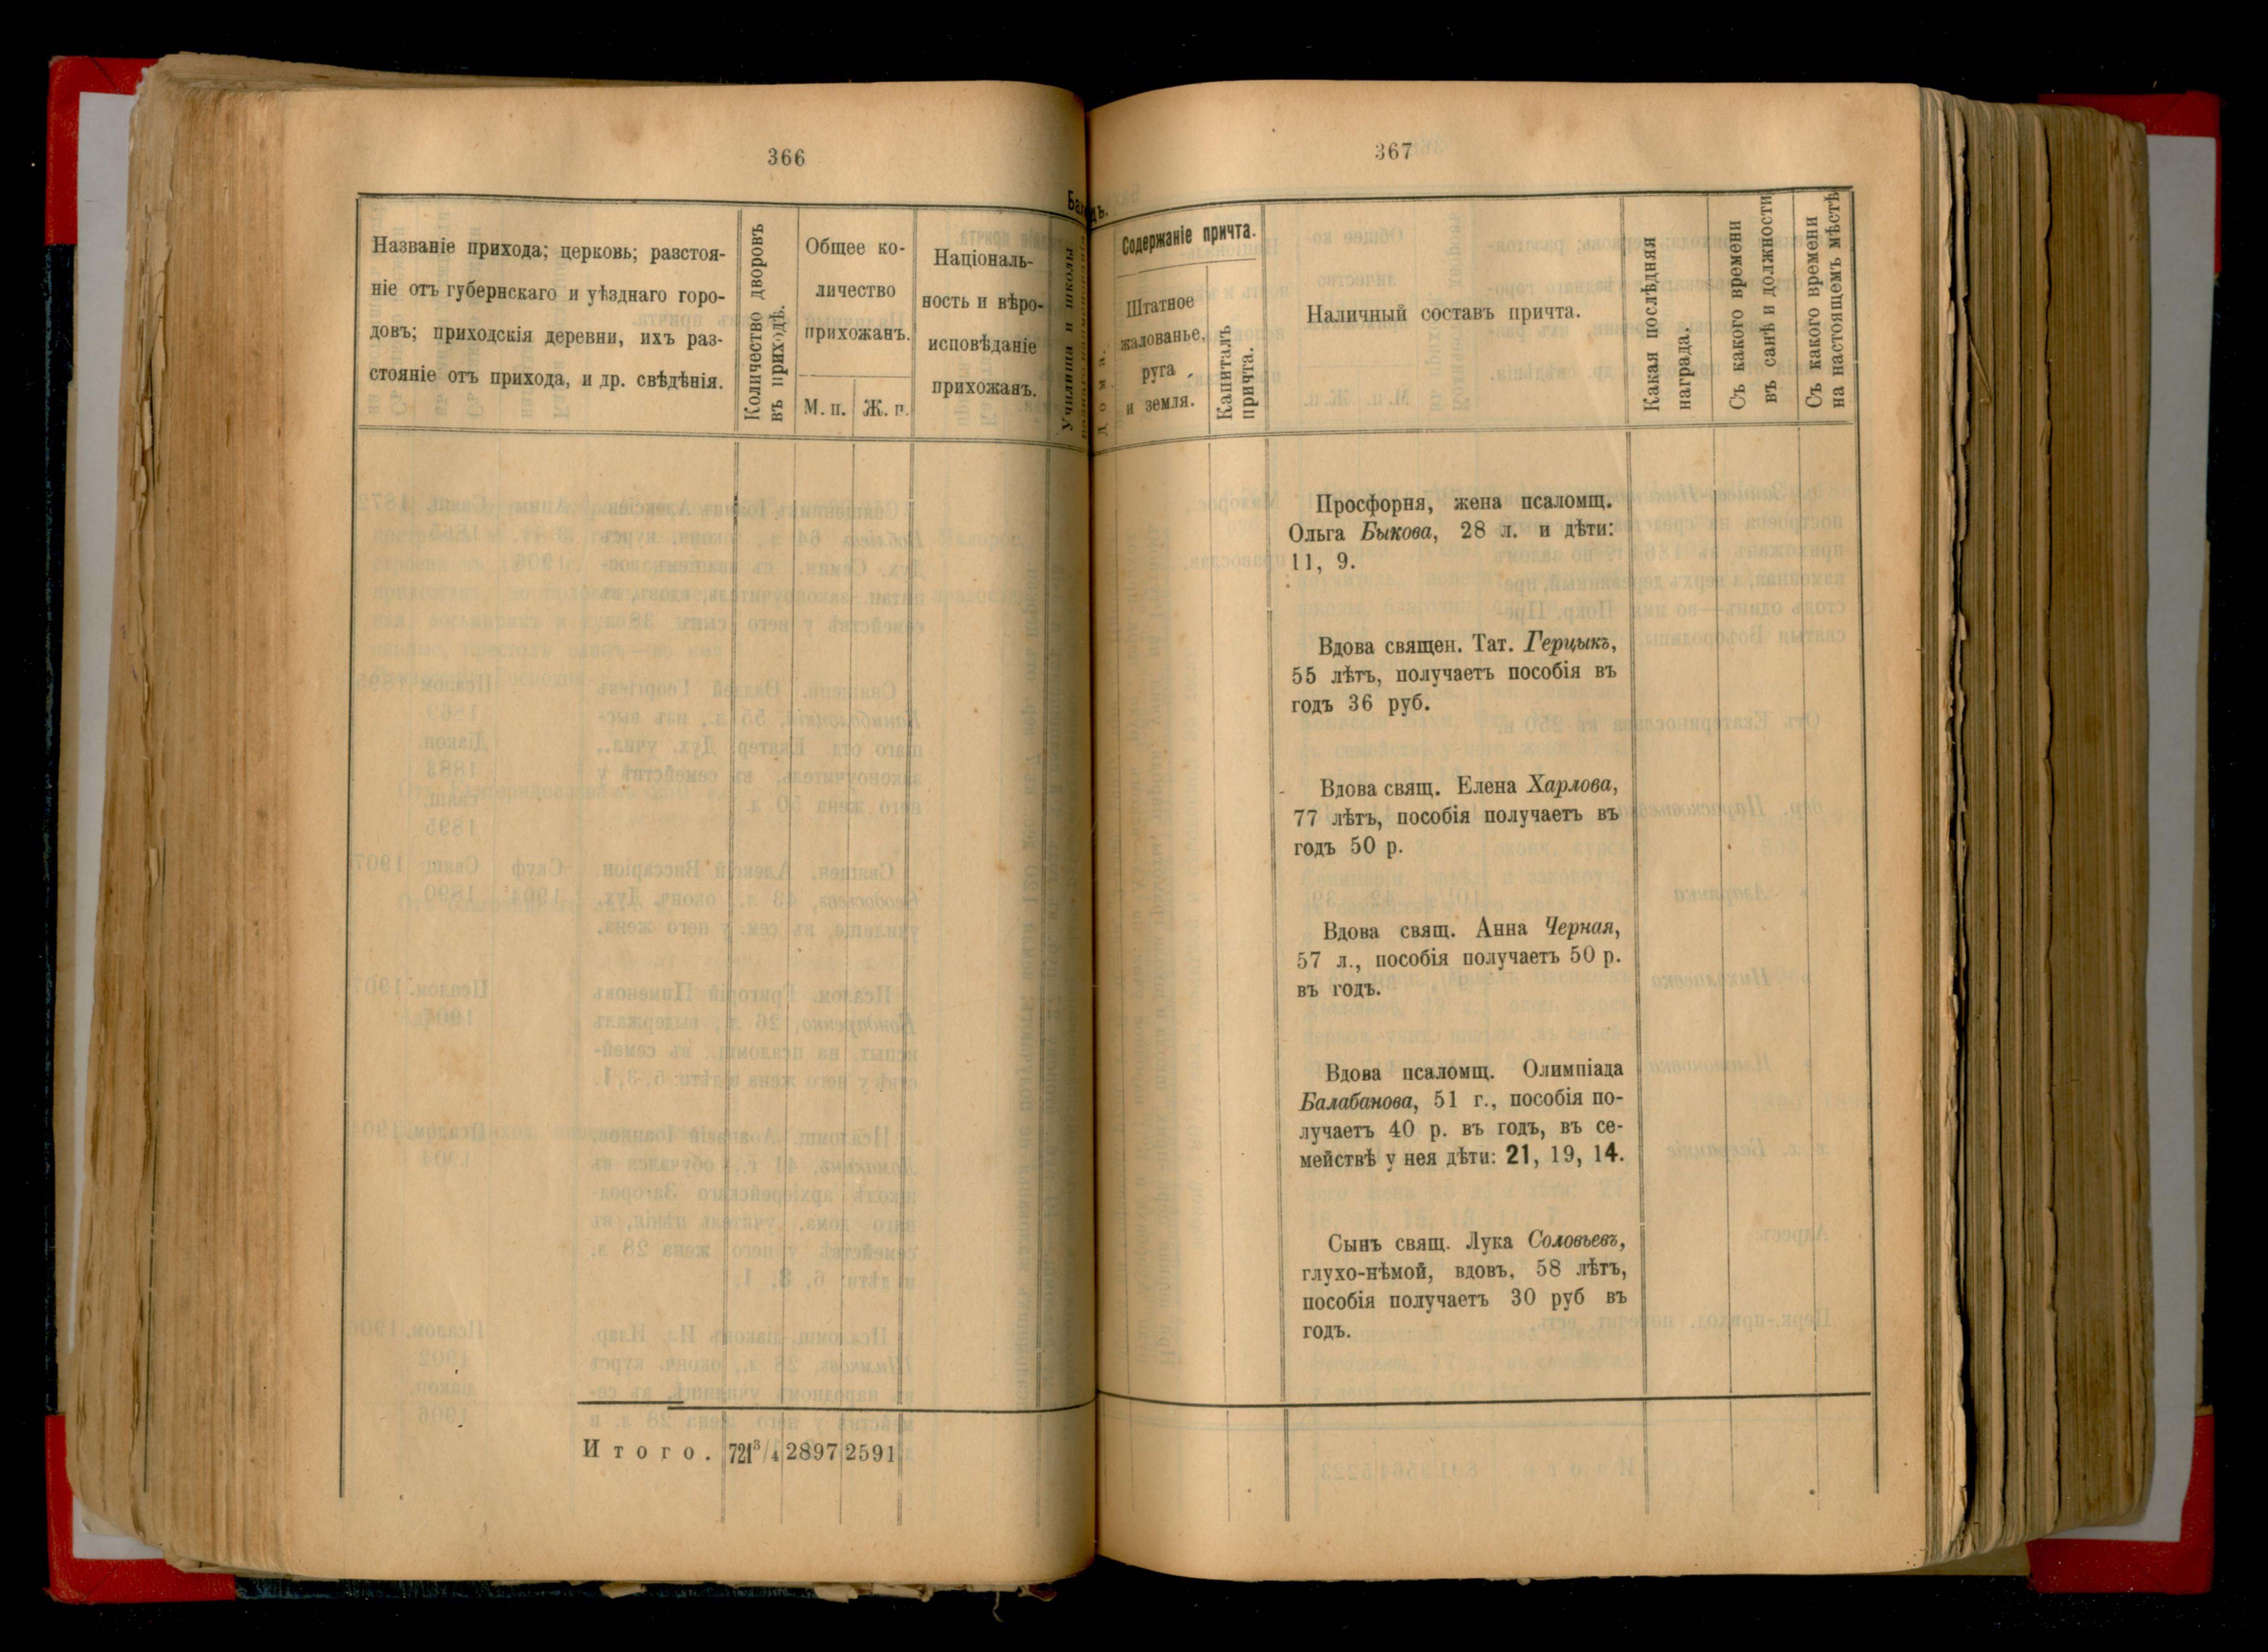 366
Названіе прихода; церковь; разстоя-
ніе отъ губернскаго и уѣзднаго горо-
довъ; приходскія деревни, ихъ раз-
стояніе отъ прихода, и др. свѣдѣнія.
Количество дворовъ
въ приходѣ.
Общее ко-
личество
прихожанъ.
М. п.
Ж. п.
Націоналъ-
ность и вѣро-
исповѣданіе
прихожанъ.
Училища и школы
Итого.
721³/4
2897
2591
367
Содержаніе причта.
Дома.
Штатное
жалованье,
руга
и земля.
Капиталъ
причта.
Наличный составъ причта.
Какая послѣдняя
награда.
Съ какого времени
въ санѣ и должности
Съ какого времени
на настоящемъ мѣстѣ
Просфорня, жена псаломщ.
Ольга Быкова, 28 л. и дѣти:
11, 9.
Вдова священ. Тат. Герцыкъ,
55 лѣтъ, получаетъ пособія въ
годъ 36 руб.
Вдова свящ. Елена Харлова,
77 лѣтъ, пособія получаетъ въ
годъ 50 р.
Вдова свящ. Анна Черная,
57 л., пособія получаетъ 50 р.
въ годъ.
Вдова псаломщ. Олимпіада
Балабанова, 51 г., пособія по-
лучаетъ 40 р. въ годъ, въ се-
мействѣ у нея дѣти: 21, 19, 14.
Сынъ свящ. Лука Соловьевъ,
глухо-нѣмой, вдовъ, 58 лѣтъ,
пособія получаетъ 30 руб въ
годъ.